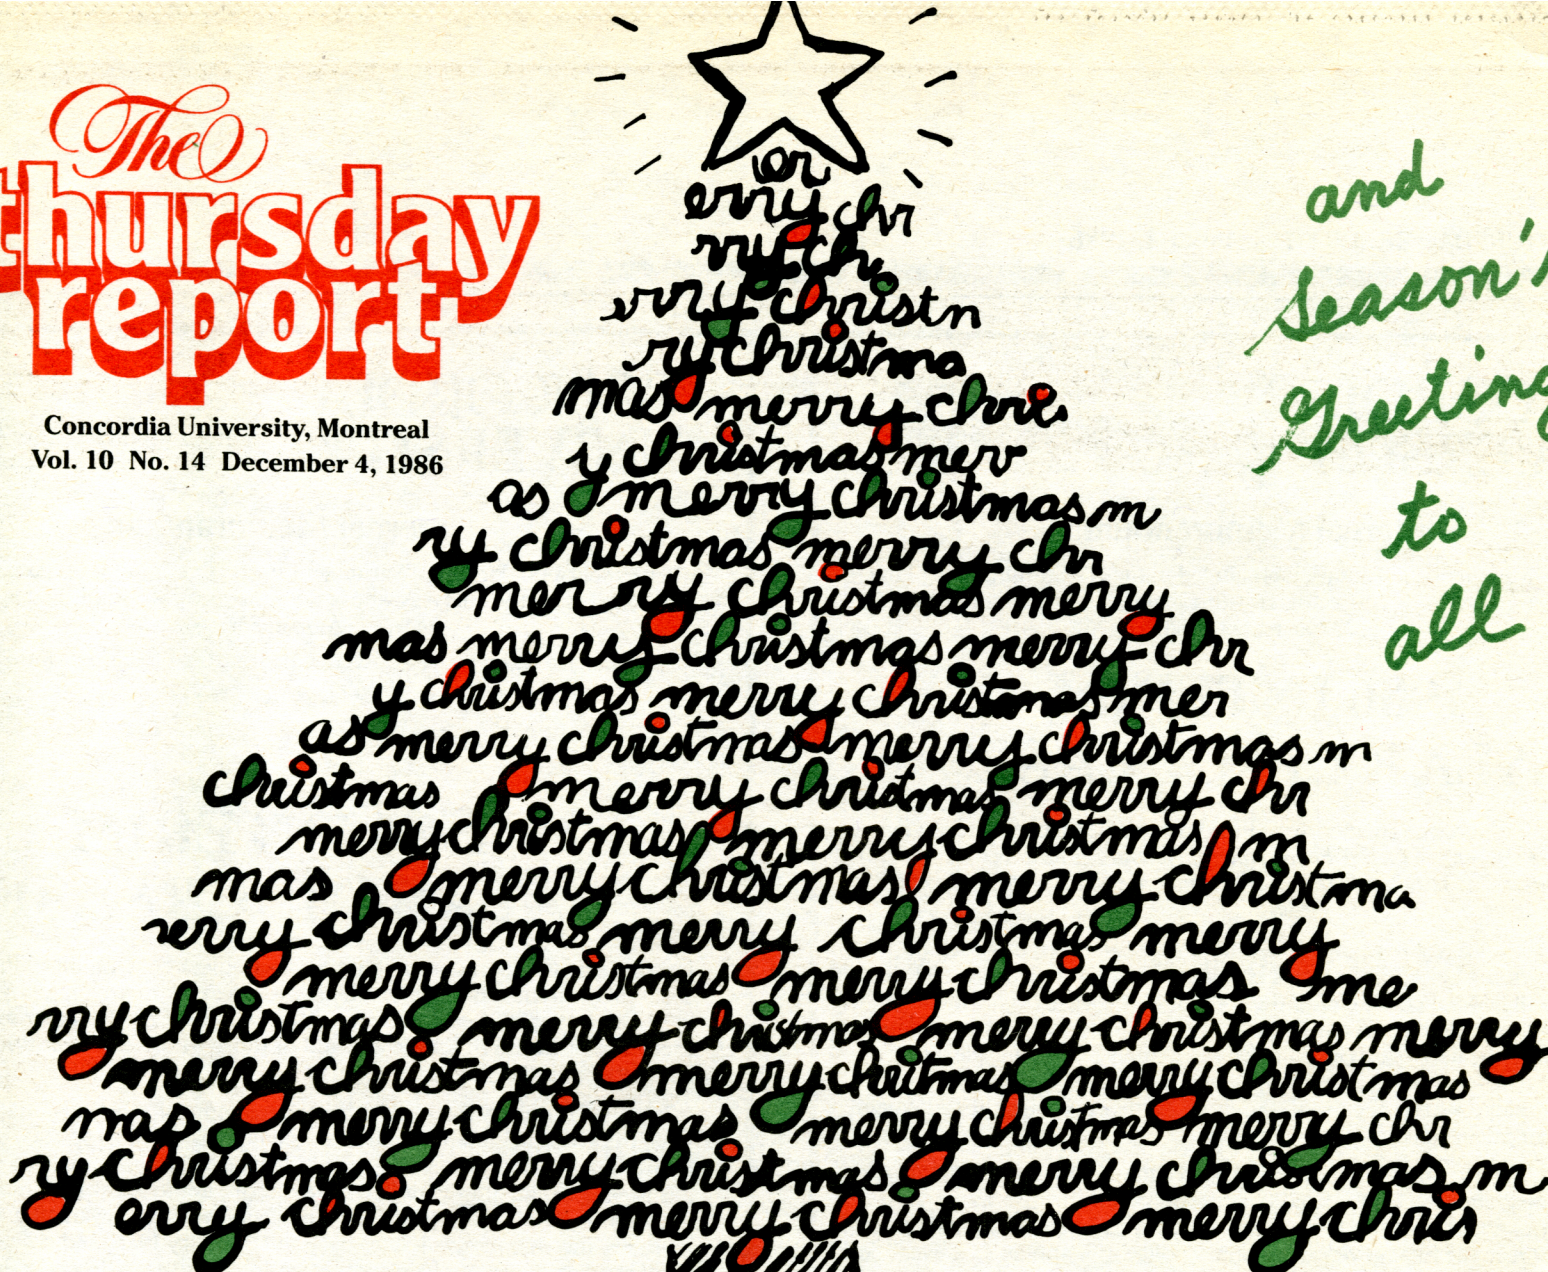 The
thursday
report
Concordia University, Montreal
Vol. 10 No. 14 December 4, 1986
and
Season's
Greeting
to
all
er
erry chr
rry chr
erry christm
ry christma
mas merry chris
y christmas mer
as merry christmas m
ry christmas merry chr
merry christmas merry
mas merry christmas merry chr
y christmas merry christmas mer
as merry christmas merry christmas m
christmas merry christmas merry chr
merry christmas merry christmas m
mas merry christmas merry christma
erry christmas merry christmas merry
merry christmas merry christmas me
rry christmas merry christmas merry christmas merry
merry christmas merry chritmas merry christmas
mas merry christmas merry christmas merry chr
ry christmas merry christmas merry christmas m
erry christmas merry christmas merry chris